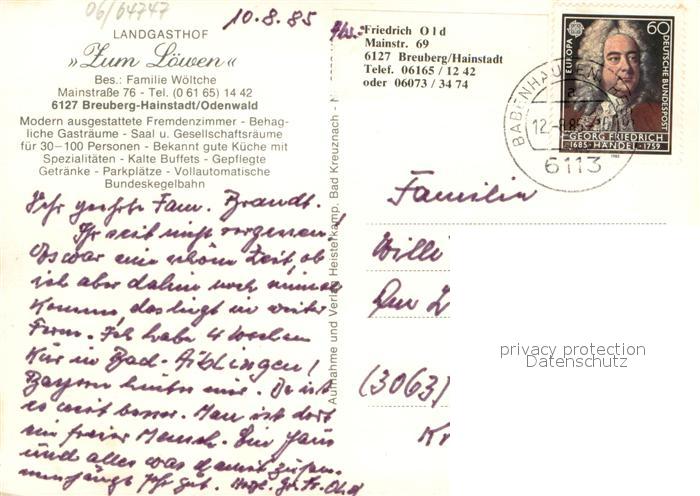 06/64747
10.8.85
LANDGASTHOF
»Zum Löwen«
Bes.: Familie Wöltche
Mainstraße 76 - Tel. (0 61 65) 14 42
6127 Breuberg-Hainstadt/Odenwald
Modern ausgestattete Fremdenzimmer - Behag-
liche Gasträume - Saal u. Gesellschaftsräume
für 30–100 Personen - Bekannt gute Küche mit
Spezialitäten - Kalte Buffets - Gepflegte
Getränke - Parkplätze - Vollautomatische
Bundeskegelbahn
Sehr geehrte Fam. Brandt.
Ihr seit nicht vergessen!
Es war eine schöne Zeit, ob
ich aber dahin noch einmal
komme, das liegt in weiter
Ferne. Ich habe 4 Wochen
Kur in Bad-Aiblingen!
Bayern hinter mir. Da ist
es weit besser. Man ist dort
ein freier Mensch. Ein Haus
und alles was damit zusam-
menhängt Ihr gut. Herzl. Gr. Fr. Old
Aufnahme und Verlag Heisterkamp, Bad Kreuznach - N
Abs.:
Friedrich Old
Mainstr. 69
6127 Breuberg/Hainstadt
Telef. 06165 / 12 42
oder 06073 / 34 74
BABENHAUSEN
a
12.-8.85
6113
EUROPA
60
DEUTSCHE BUNDESPOST
GEORG FRIEDRICH
1685 · HÄNDEL · 1759
1985
Familie
Willi
(3063)
privacy protection
Datenschutz